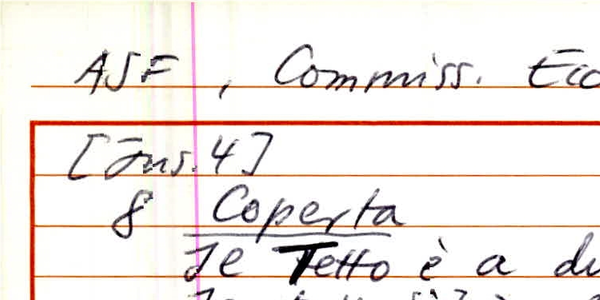 ASF, Commiss. Ecc
[Ins. 4]
8 Coperta
Se Tetto è a du